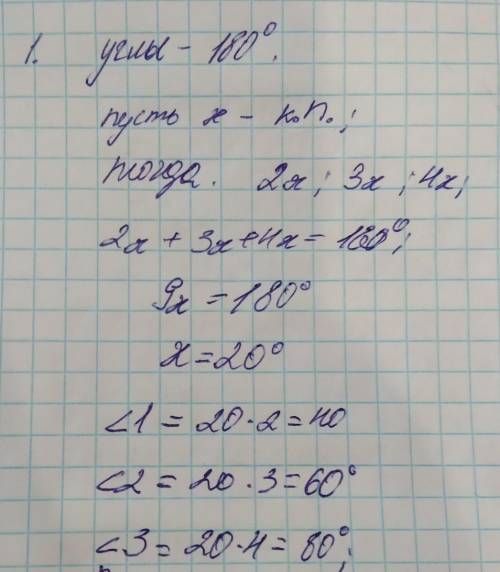 1. углы - 180°.
пусть x - к.п.;
тогда. 2x; 3x; 4x;
2x + 3x + 4x = 180°;
9x = 180°
x = 20°
∠1 = 20 · 2 = 40
∠2 = 20 · 3 = 60°
∠3 = 20 · 4 = 80°;